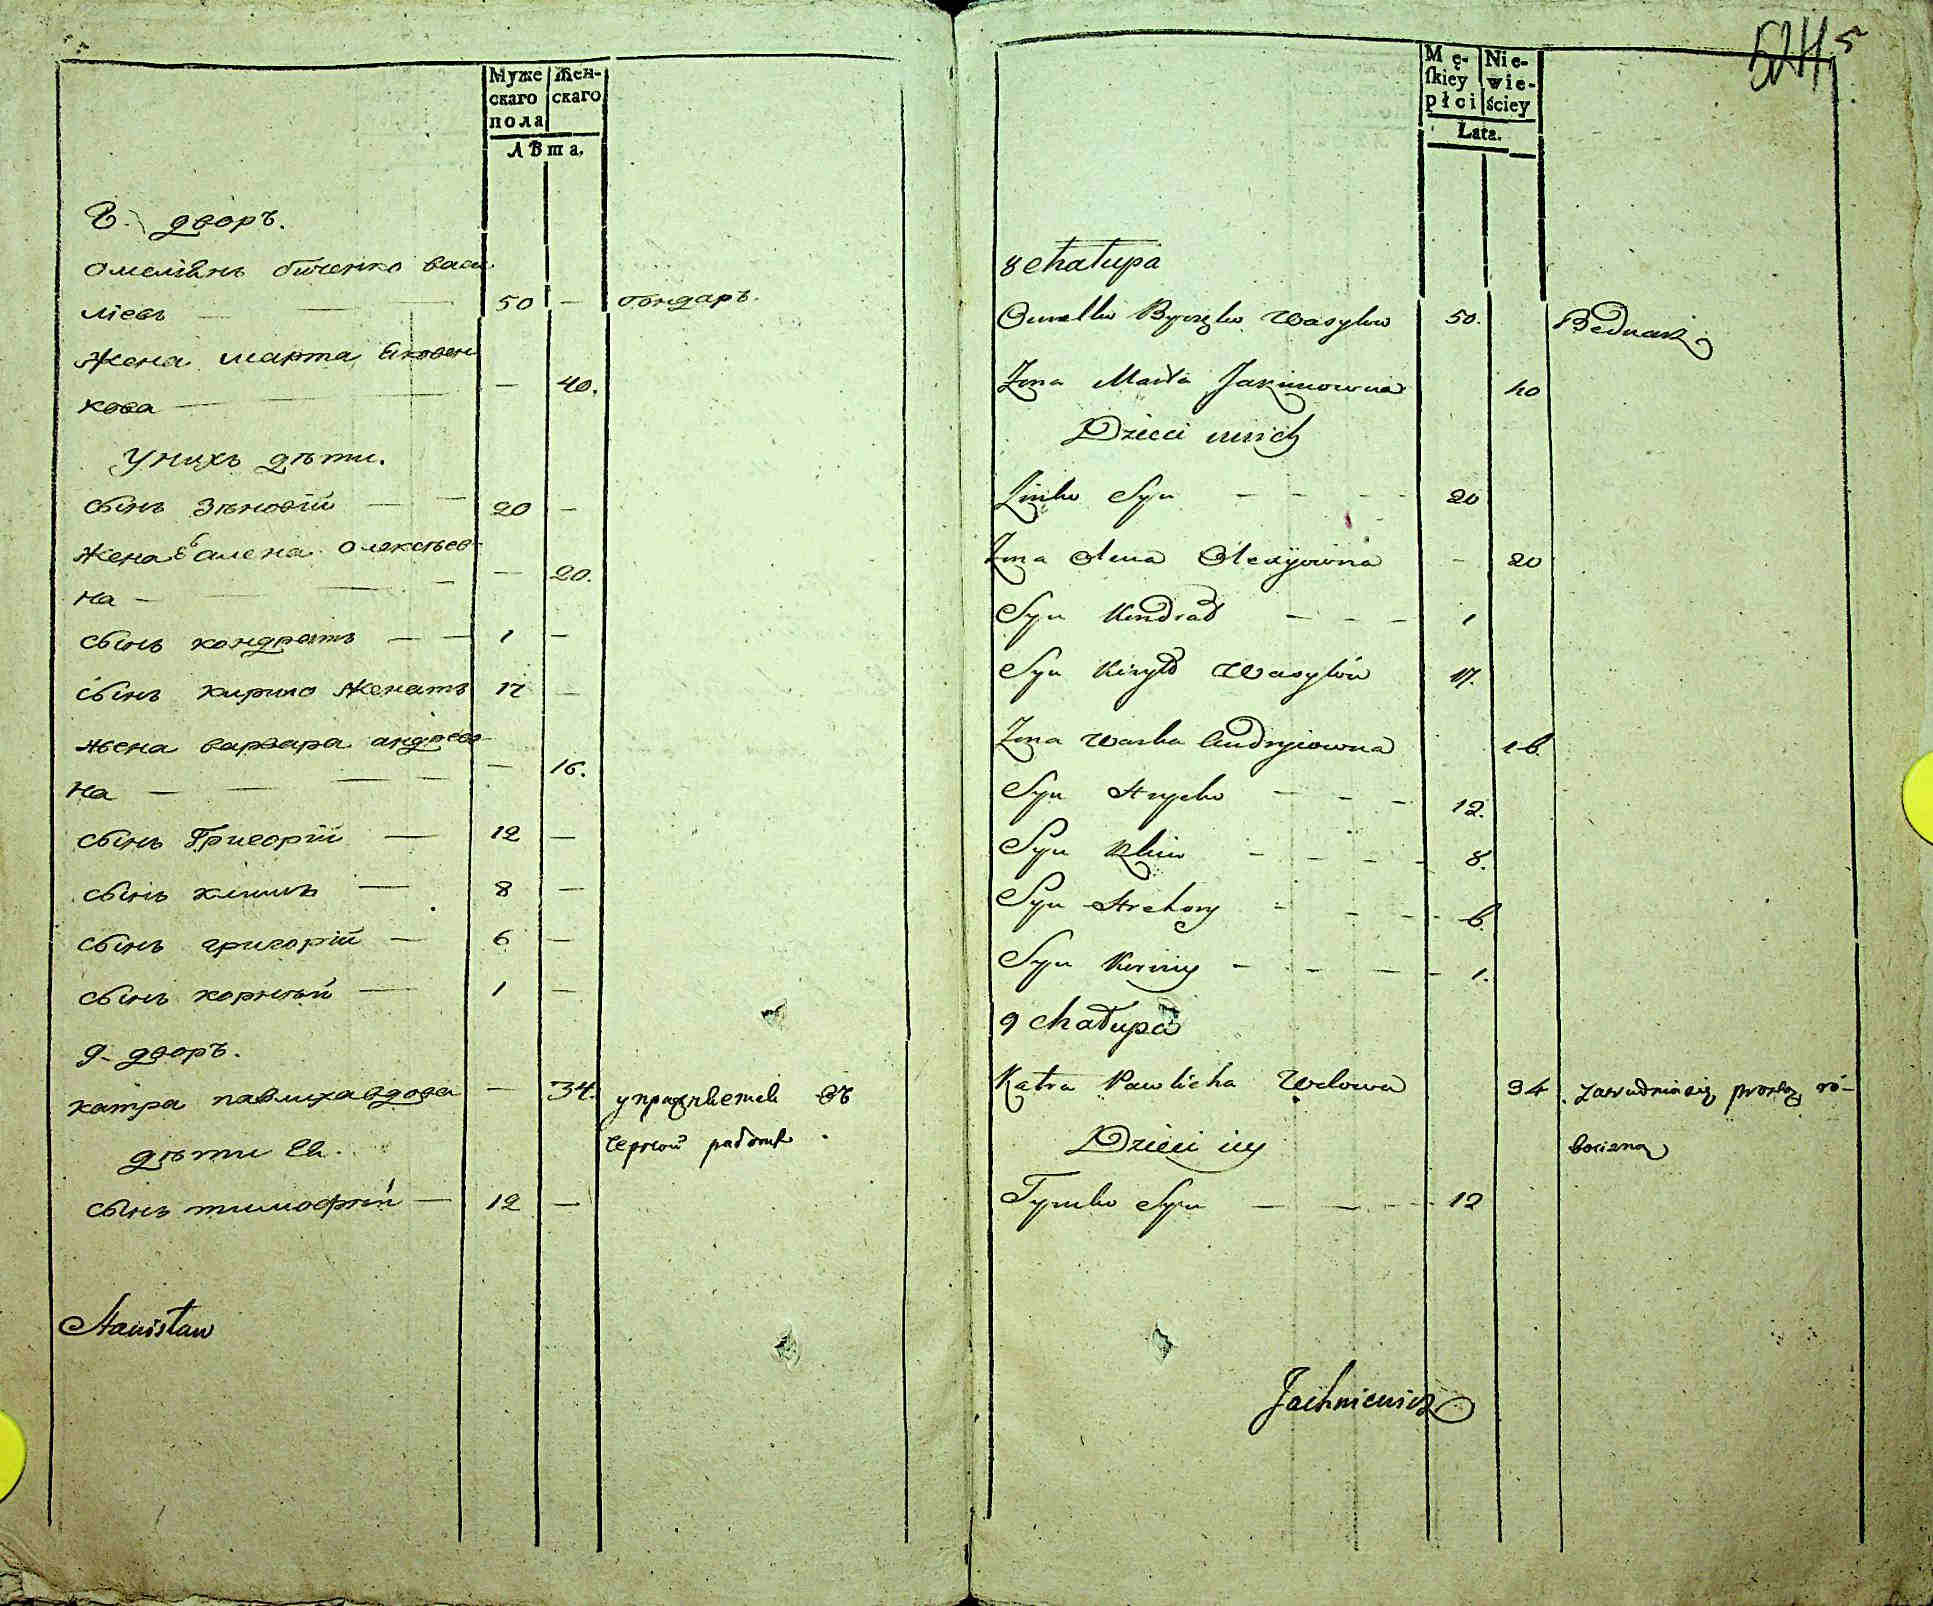 Муже
скаго
пола
Жен-
скаго
ЛѢта.
8. дворъ.
омеліѧнъ биченко васи
ліевъ — — 50 — бондаръ.
Жена марта Яковен
кова — — — 40.
Унихъ дѣти.
сынъ Зѣновій — — 20 —
Жена Ево алена олексѣев
на — — — — 20.
сынъ кондратъ — — 1 —
сынъ кирило Женатъ 17 —
жена варвара андрѣев
на — — — — 16.
сынъ Григорій — 12 —
сынъ климъ — 8 —
сынъ григорій — 6 —
сынъ корнѣй — 1 —
9. дворъ.
катра павлиха вдова — 34. упражняется въ
черной работѣ.
дѣти Ея.
сынъ тимофѣй — 12 —
Stanisław
5
Mę-
ſkiey
płci
Nie-
wie-
ściey
Lata.
8 chałupa
Omelko Byczko Wasylow 50. Bednarz
Zona Marta Jakimowna 40
Dzieci unich
Zinko Syn — — — 20
Zona Olena Olexyiowna — 20
Syn Kondrad — — — 1
Syn Kiryło Wasylów 17.
Zona Warka Andryiowna 16.
Syn Hrycko — — — 12.
Syn Klim — — — — 8.
Syn Hrehory — — — 6.
Syn Korniy — — — — 1.
9 chałupa
Katra Pawlicha Wdowa 34. zatrudnia się prostą ro-
bocizną
Dzieci iey
Tymko Syn — — — 12
Jachniewicz